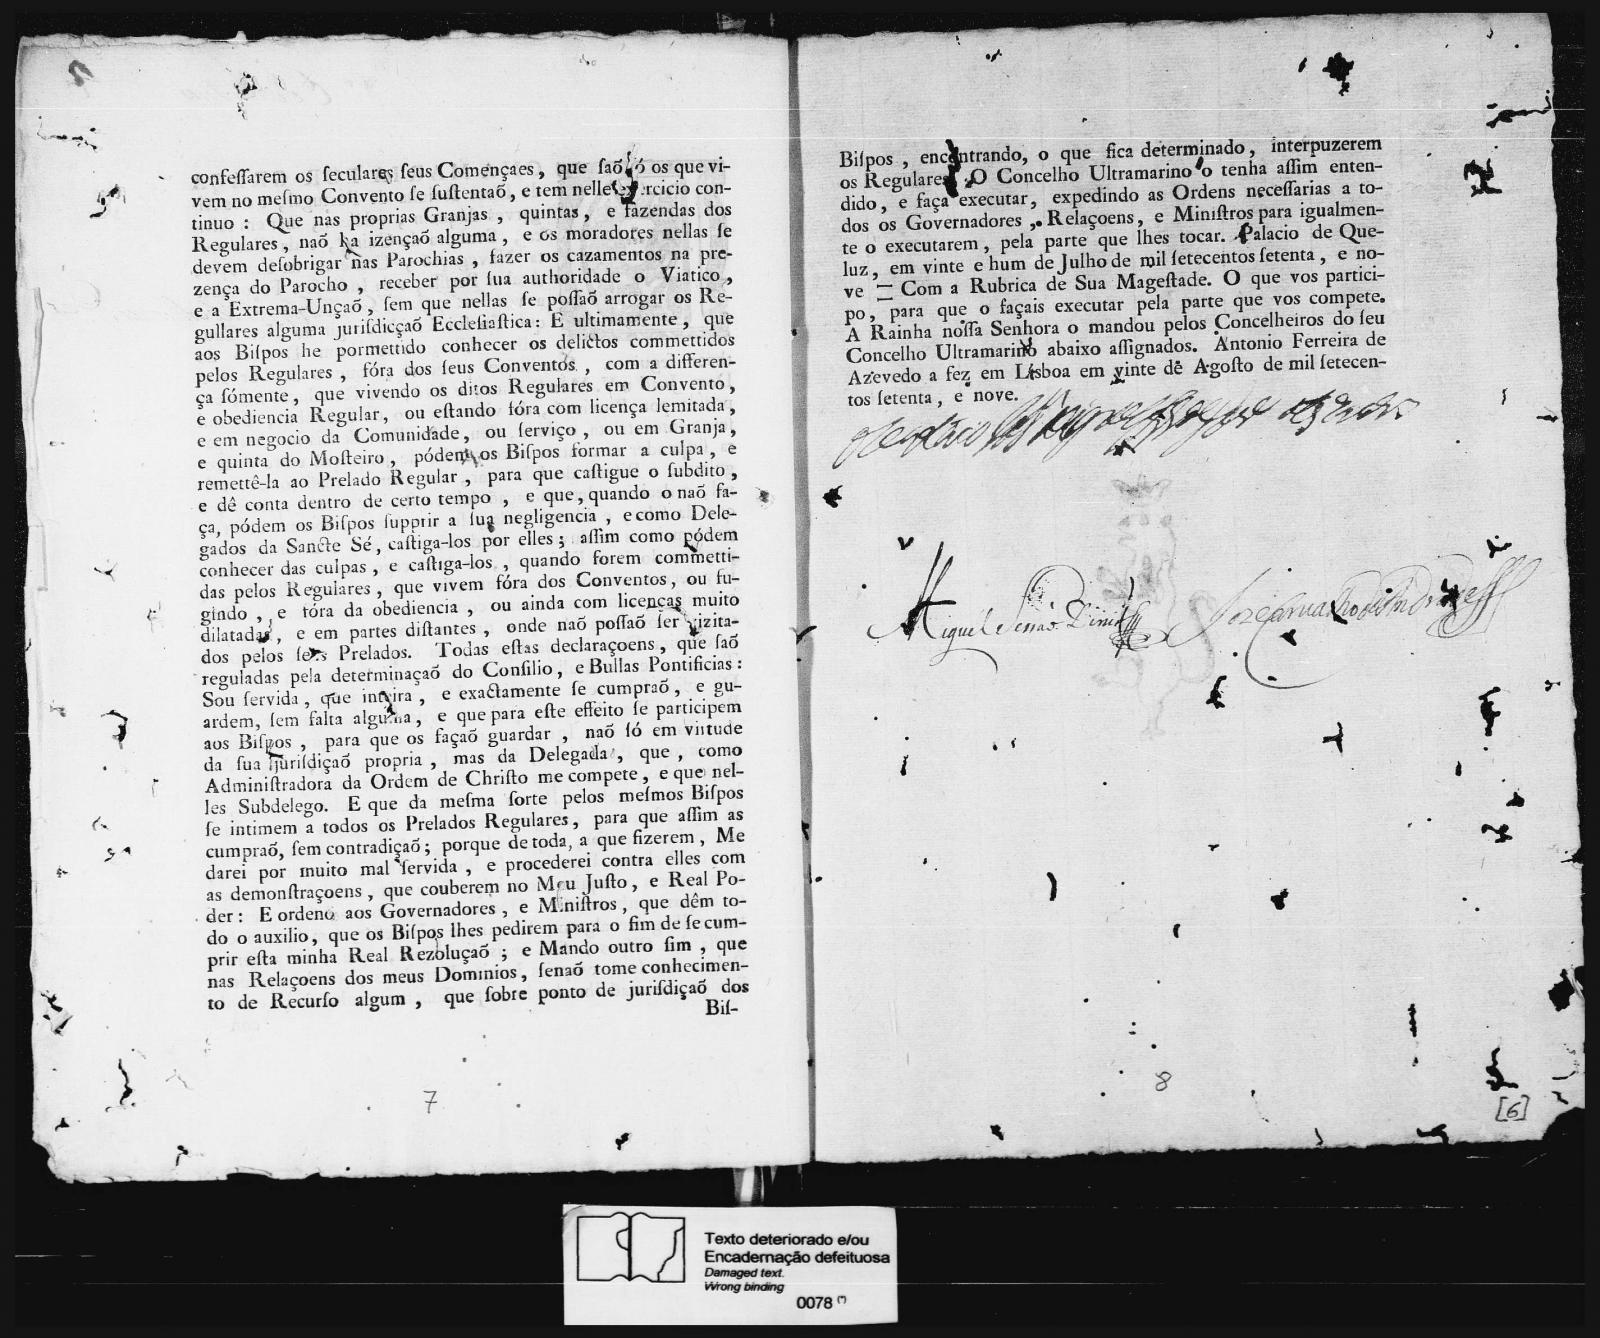 confeſſarem os ſeculares ſeus Començaes, que ſaõ ſó os que vi-
vem no meſmo Convento ſe ſuſtentaõ, e tem nelle exercicio con-
tinuo : Que nas proprias Granjas, quintas, e fazendas dos
Regulares, naõ ha izençaõ alguma, e os moradores nellas ſe
devem deſobrigar nas Parochias, fazer os cazamentos na pre-
zença do Parocho, receber por ſua authoridade o Viatico,
e a Extrema-Unçaõ, ſem que nellas ſe poſſaõ arrogar os Re-
gullares alguma juriſdicçaõ Eccleſiaſtica: E ultimamente, que
aos Biſpos he pormettido conhecer os delictos commettidos
pelos Regulares, fóra dos ſeus Conventos, com a differen-
ça ſómente, que vivendo os ditos Regulares em Convento,
e obediencia Regular, ou eſtando fóra com licença lemitada,
e em negocio da Comunidade, ou ſerviço, ou em Granja,
e quinta do Moſteiro, pódem os Biſpos formar a culpa, e
remettê-la ao Prelado Regular, para que caſtigue o ſubdito,
e dê conta dentro de certo tempo, e que, quando o naõ fa-
ça, pódem os Biſpos ſupprir a ſua negligencia, e como Dele-
gados da Sancte Sé, caſtiga-los por elles; aſſim como pódem
conhecer das culpas, e caſtiga-los, quando forem commetti-
das pelos Regulares, que vivem fóra dos Conventos, ou fu-
gindo, e fóra da obediencia, ou ainda com licenças muito
dilatadas, e em partes diſtantes, onde naõ poſſaõ ſer vizita-
dos pelos ſeus Prelados. Todas eſtas declaraçoens, que ſaõ
reguladas pela determinaçaõ do Conſilio, e Bullas Pontificias:
Sou ſervida, que inteira, e exactamente ſe cumpraõ, e gu-
ardem, ſem falta alguma, e que para eſte effeito ſe participem
aos Biſpos, para que os façaõ guardar, naõ ſó em virtude
da ſua juriſdiçaõ propria, mas da Delegada, que, como
Adminiſtradora da Ordem de Chriſto me compete, e que nel-
les Subdelego. E que da meſma ſorte pelos meſmos Biſpos
ſe intimem a todos os Prelados Regulares, para que aſſim as
cumpraõ, ſem contradiçaõ; porque de toda, a que fizerem, Me
darei por muito mal ſervida, e procederei contra elles com
as demonſtraçoens, que couberem no Meu Juſto, e Real Po-
der: E ordeno aos Governadores, e Miniſtros, que dêm to-
do o auxilio, que os Biſpos lhes pedirem para o fim de ſe cum-
prir eſta minha Real Rezoluçaõ; e Mando outro ſim, que
nas Relaçoens dos meus Dominios, ſenaõ tome conhecimen-
to de Recurſo algum, que ſobre ponto de juriſdiçaõ dos
Biſ-
7
Biſpos, encontrando, o que fica determinado, interpuzerem
os Regulares. O Concelho Ultramarino o tenha aſſim enten-
dido, e faça executar, expedindo as Ordens neceſſarias a to-
dos os Governadores, Relaçoens, e Miniſtros para igualmen-
te o executarem, pela parte que lhes tocar. Palacio de Que-
luz, em vinte e hum de Julho de mil ſetecentos ſetenta, e no-
ve = Com a Rubrica de Sua Mageſtade. O que vos partici-
po, para que o façais executar pela parte que vos compete.
A Rainha noſſa Senhora o mandou pelos Concelheiros do ſeu
Concelho Ultramarino abaixo aſſignados. Antonio Ferreira de
Azevedo a fez em Lisboa em vinte de Agoſto de mil ſetecen-
tos ſetenta, e nove.
Miguel
8
[6]
Texto deteriorado e/ou
Encadernação defeituosa
Damaged text.
Wrong binding
0078 (*)